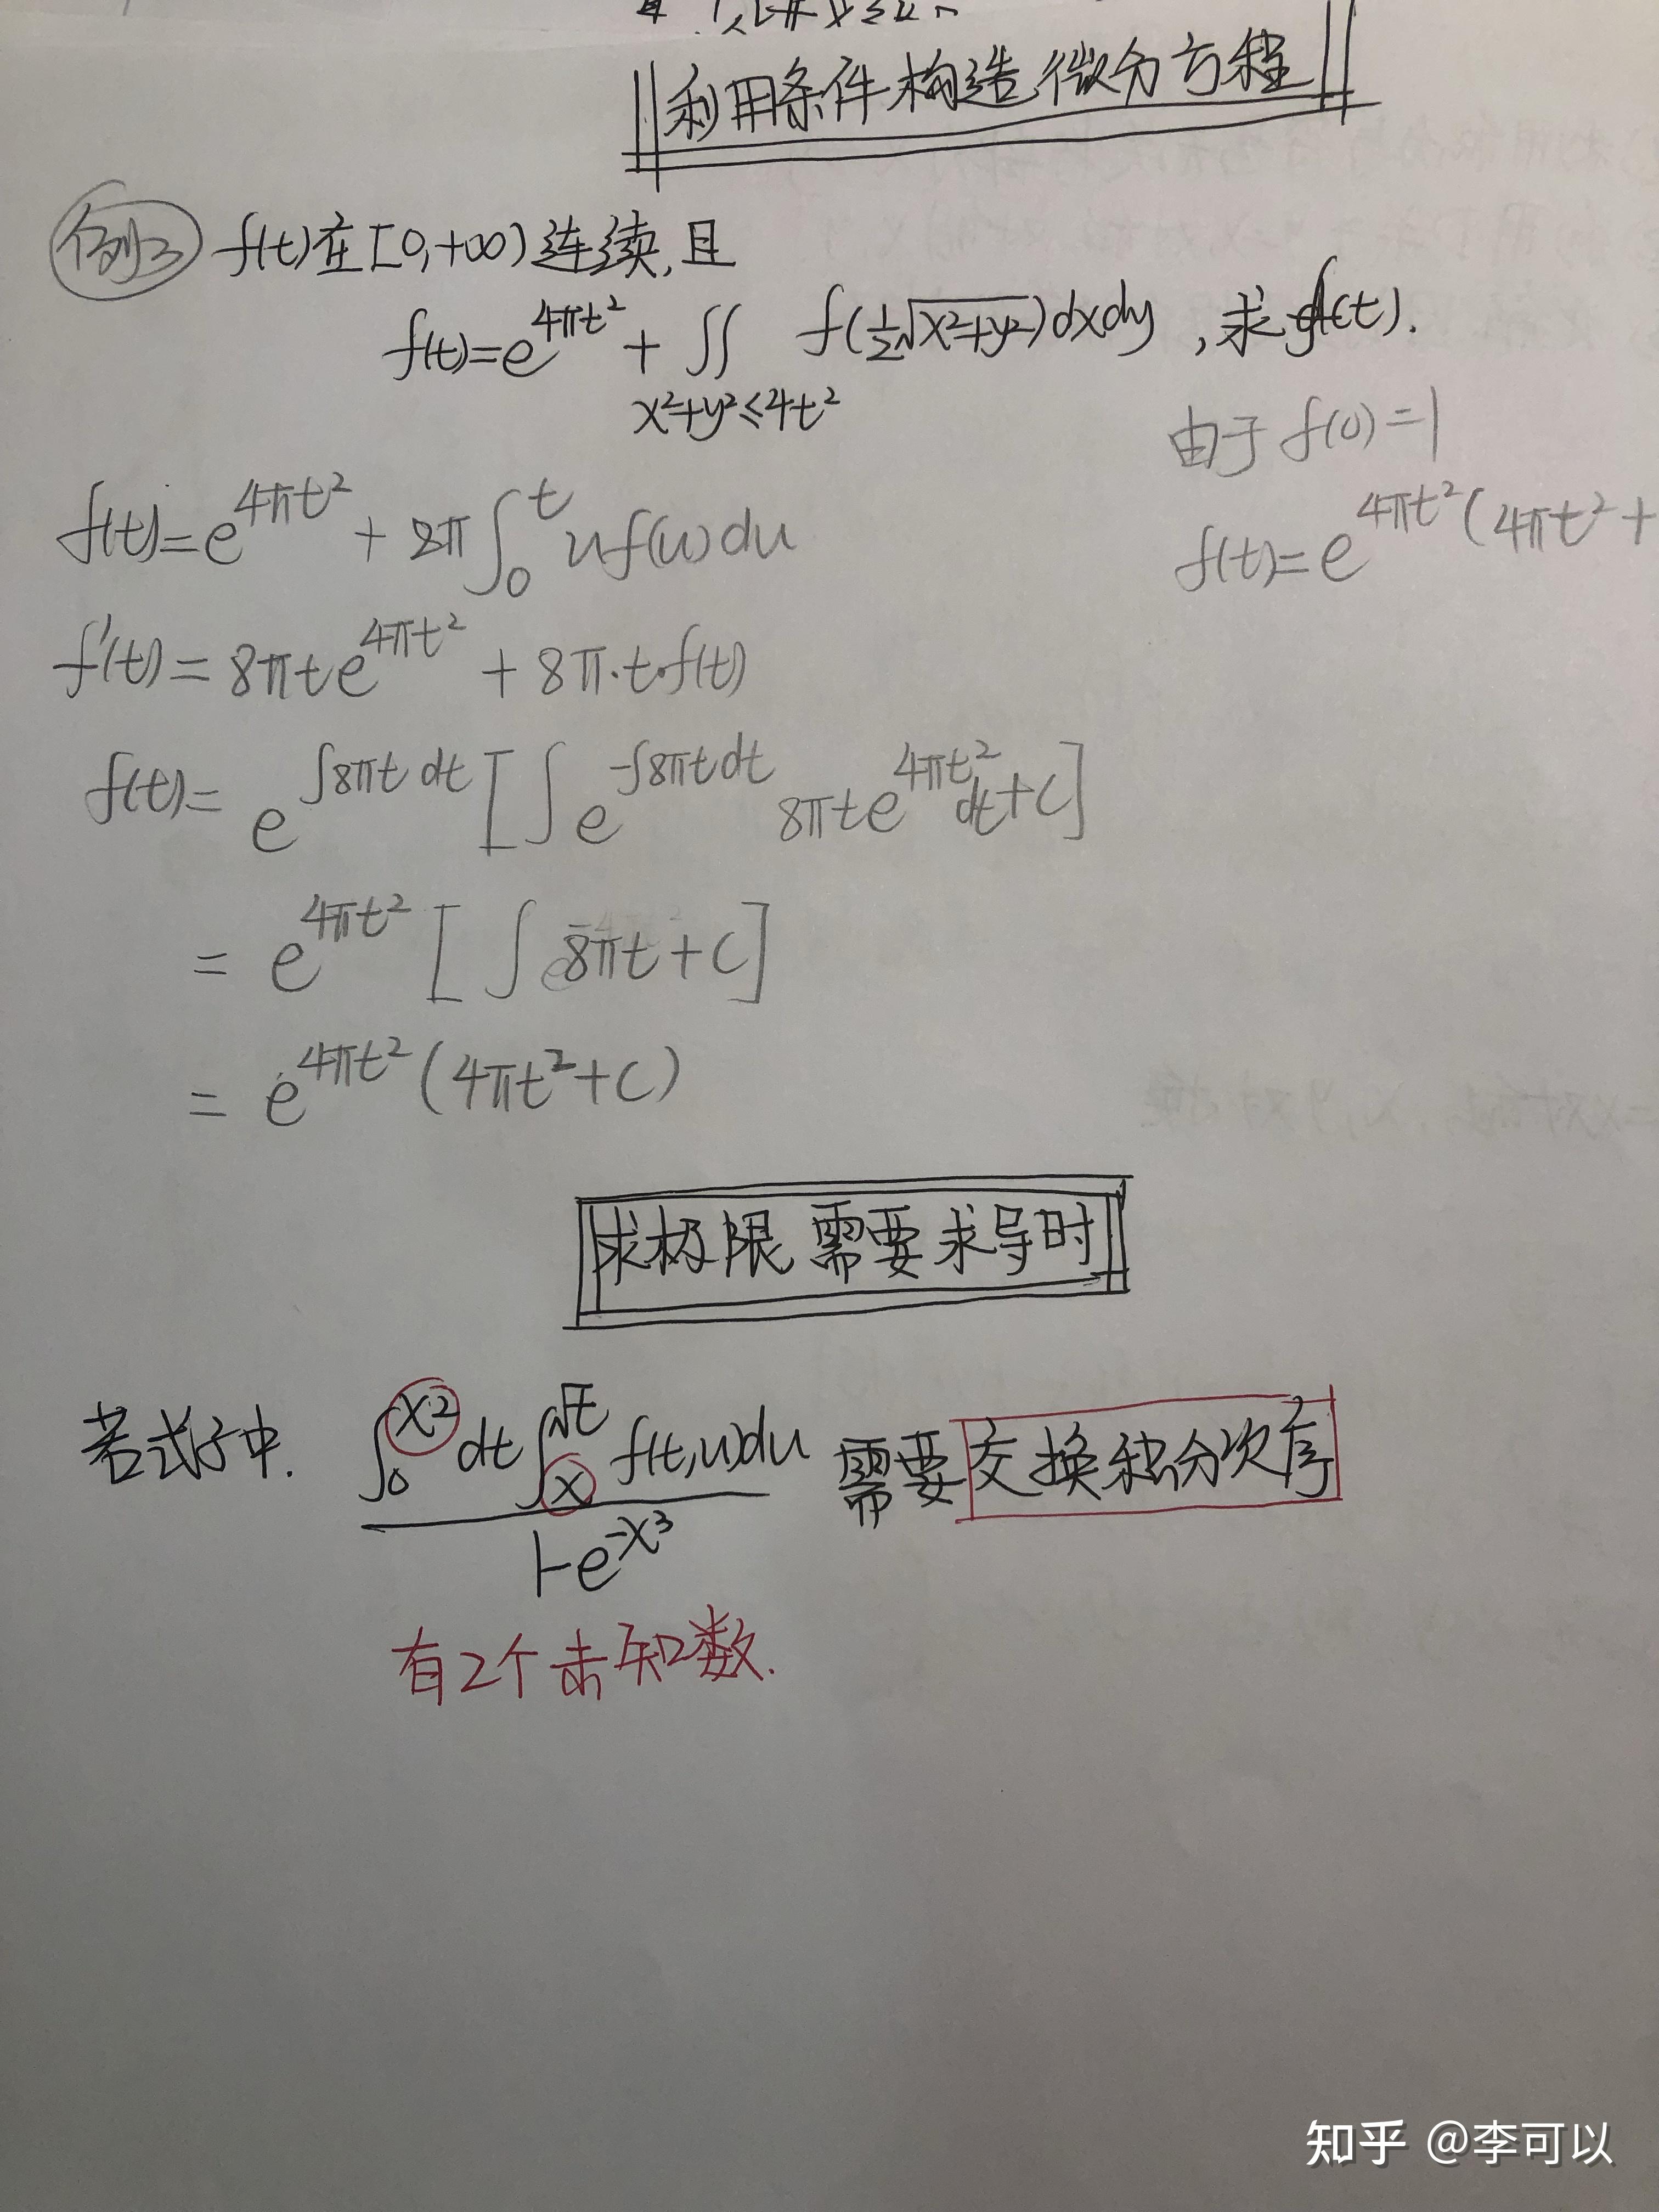 利用条件构造微分方程
例3 f(t)在[0,+∞)连续,且
f(t)=e^{4πt²}+∬_{x²+y²≤4t²} f(½√(x²+y²))dxdy,求f(t).
由于 f(0)=1
f(t)=e^{4πt²}(4πt²+
f(t)=e^{4πt²}+8π∫₀ᵗuf(u)du
f'(t)=8πte^{4πt²}+8π·t·f(t)
f(t)=e^{∫8πtdt}[∫e^{-∫8πtdt}8πte^{4πt²}dt+C]
=e^{4πt²}[∫8πt+C]
=e^{4πt²}(4πt²+C)
求极限需要求导时
若式子中. ∫₀^{x²}dt∫ₓ^{√t}f(t,u)du / 1-e^{-x³} 需要交换积分次序
有2个未知数.
知乎 @李可以